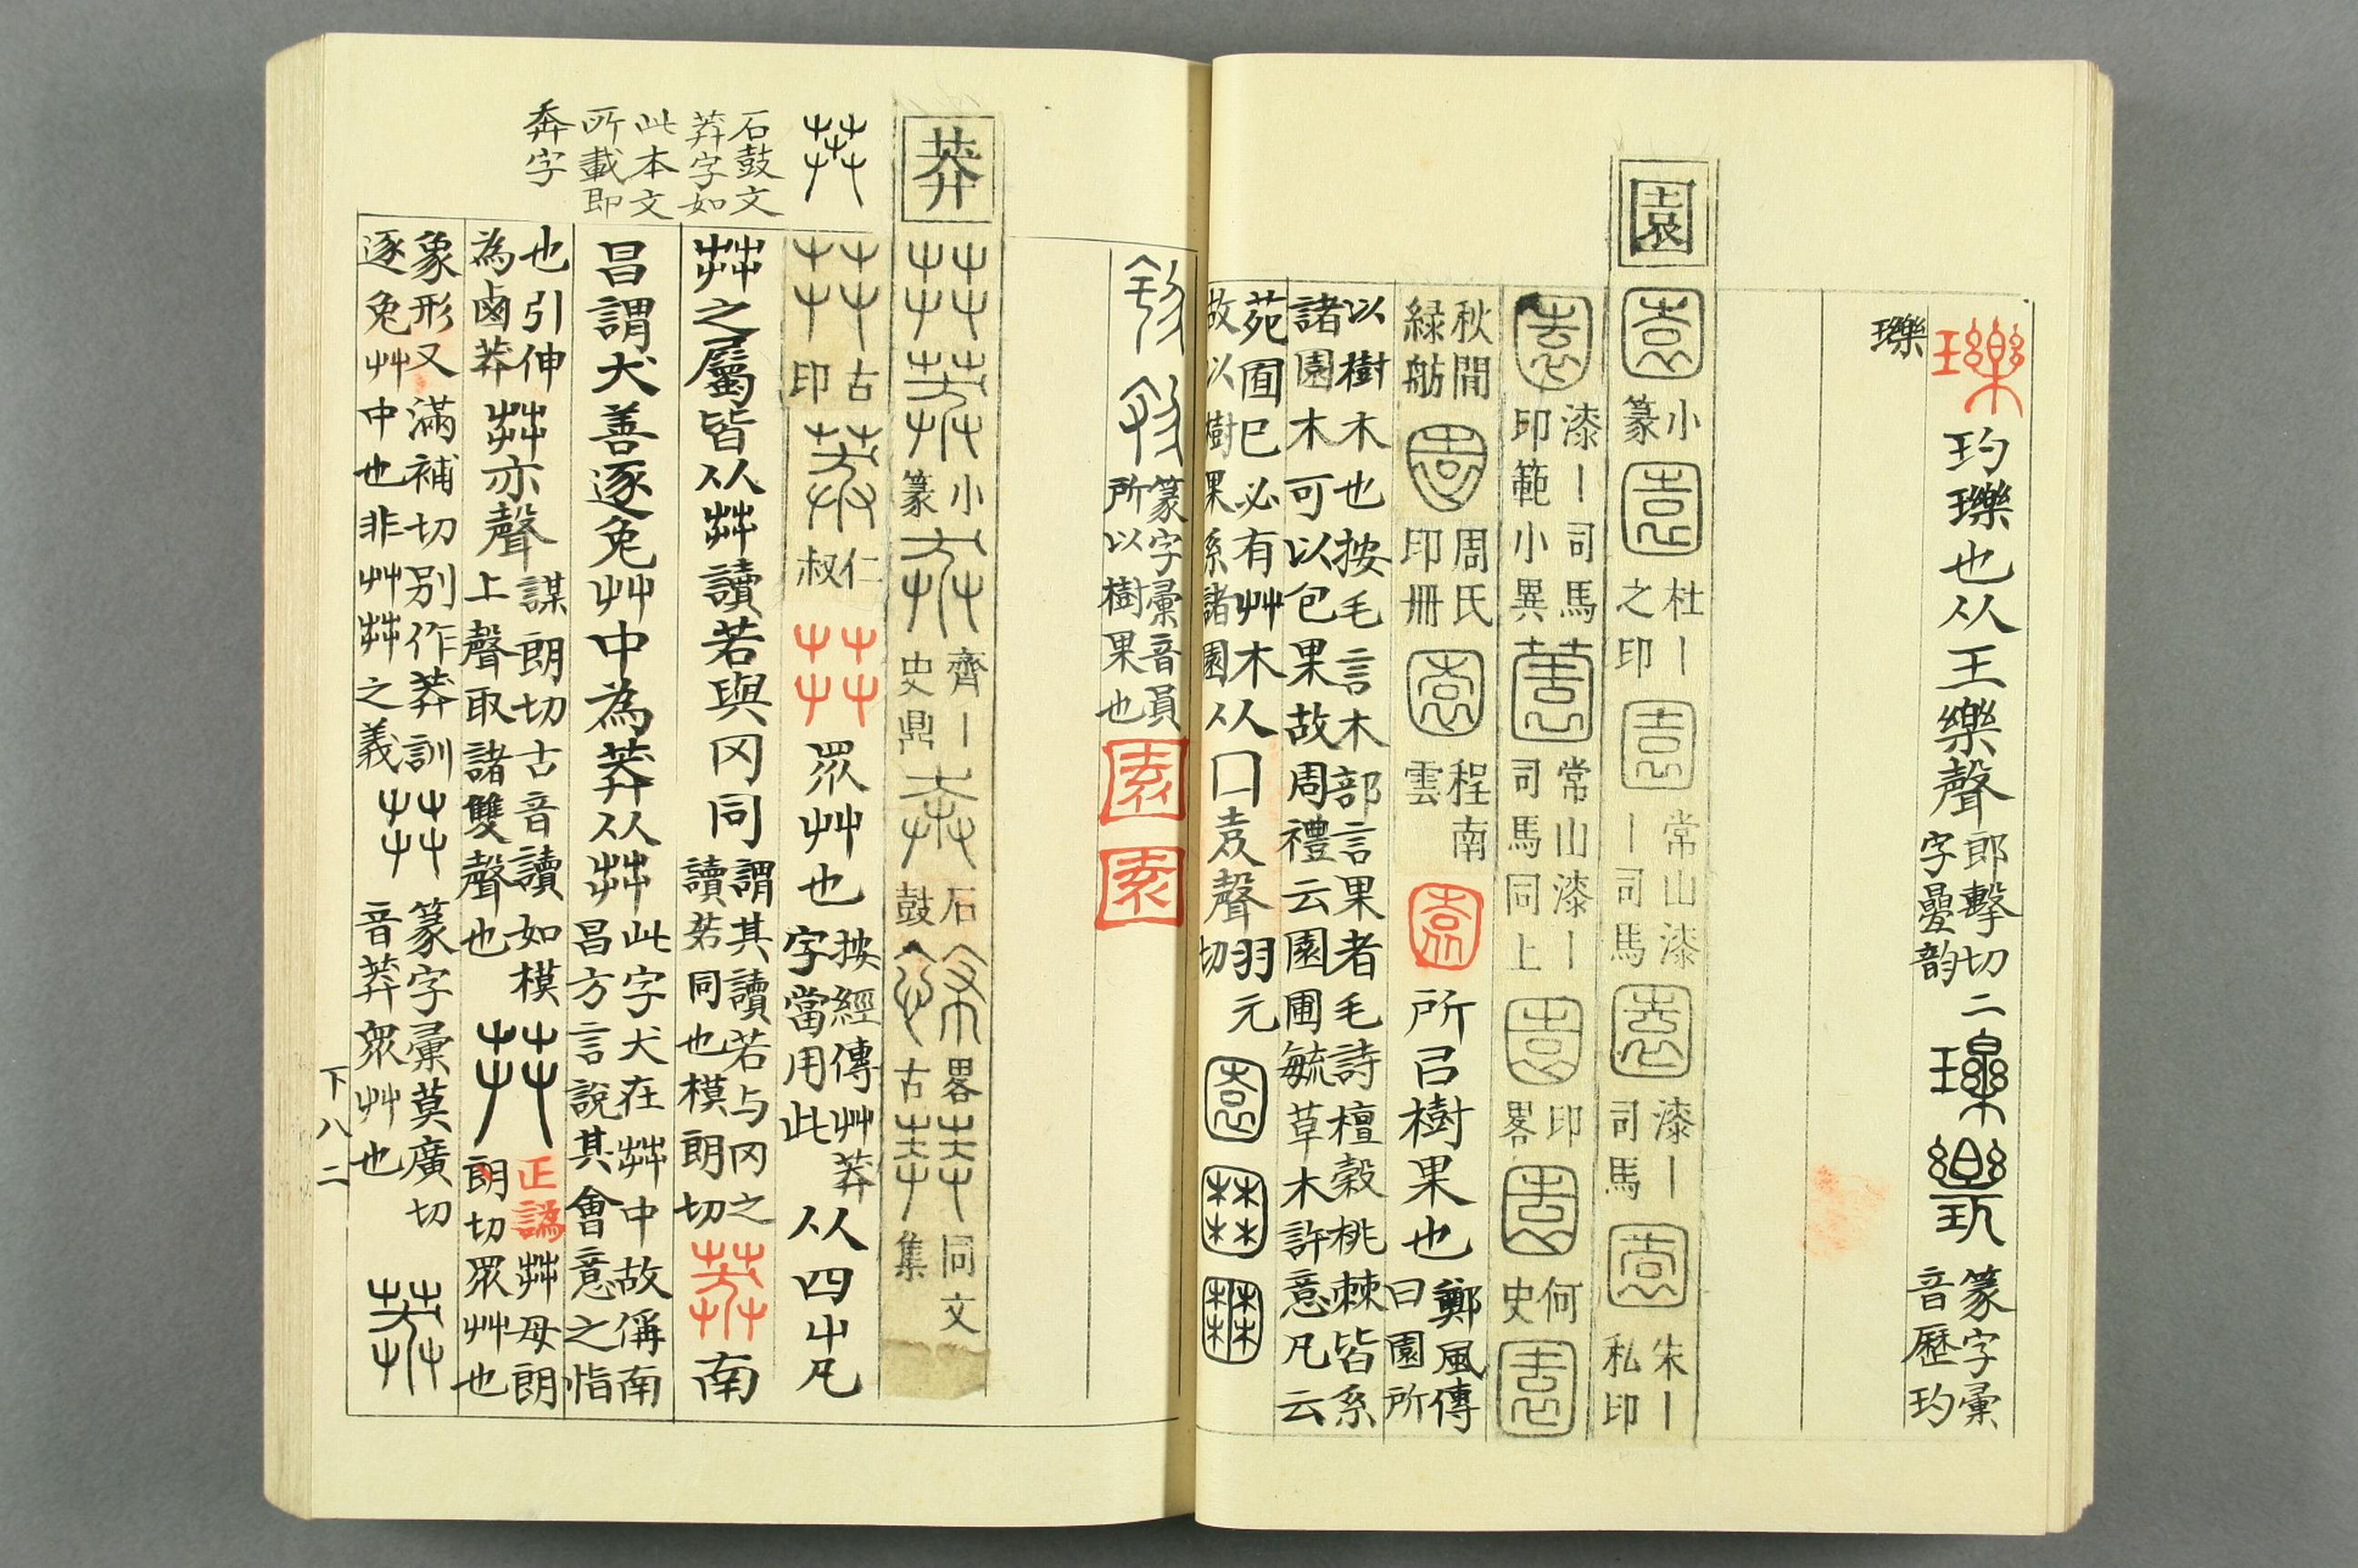 瓅
玓瓅也从王樂聲
郎擊切二
字曡韵
篆字彙
音歷玓
瓅
園
小
篆
杜丨
之印
常山漆
丨司馬
漆丨
司馬
朱丨
私印
漆丨司馬
印範小異
常山漆丨
司馬同上
印
畧
何
史
秋閒
緑舫
周氏
印冊
程南
雲
所㠯樹果也
鄭風傳
曰園所
以樹木也按毛言木部言果者毛詩檀榖桃棘皆系
諸園木可以包果故周禮云園圃毓草木許意凡云
苑囿巳必有艸木
故以樹果系諸園
从囗袁聲
羽元
切
篆字彙音員
所以樹果也
莽
小
篆
齊丨
史鼎
石
鼓
畧
古
同文
集
古
印
仁
叔
茻
眾艸也
按經傳艸莽
字當用此
从四屮凡
茻之屬皆从茻讀若與冈同
謂其讀若与冈之
讀若同也模朗切
莽
南
昌謂犬善逐兔艸中為莽从茻
此字犬在茻中故偁南
昌方言說其會意之恉
也引伸
為鹵莽
茻亦聲
謀朗切古音讀如模
上聲取諸雙聲也
正譌
茻母朗
朗切眾艸也
象形又滿補切别作莽訓
逐兔艸中也非艸茻之義
篆字彙莫廣切
音莽眾艸也
石鼓文
莽字如
此本文
所載即
奔字
下八二